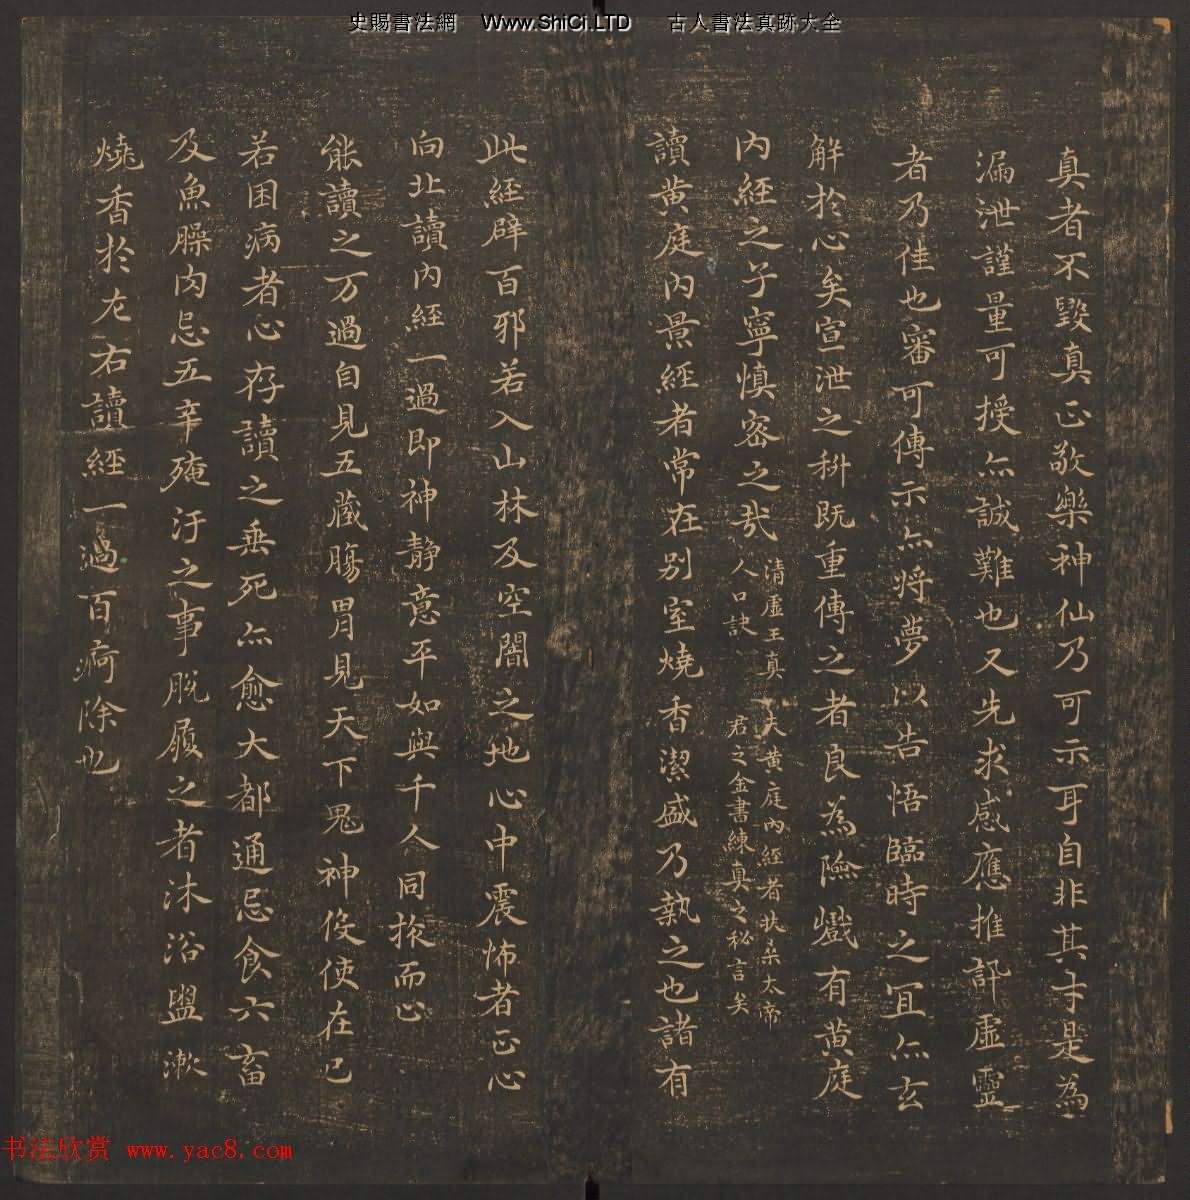 史賜書法網 Www.ShiCi.LTD 古人書法真跡大全
真者不毀真正敬樂神仙乃可示耳自非其才是為
漏泄謹量可授亦誠難也又先求感應推訊虛靈
者乃佳也審可傳示亦將夢以告悟臨時之宜亦玄
解於心矣宣泄之科既重傳之者良為險巇有黃庭
內經之子寧慎密之哉清虛王真人口訣夫黃庭內經者扶桑太帝君之金書練真之秘言矣
讀黃庭內景經者常在別室燒香潔盛乃執之也諸有
此經辟百邪若入山林及空闇之地心中震怖者正心
向北讀內經一過即神靜意平如與千人同旅而心
能讀之万過自見五藏腸胃見天下鬼神役使在已
若困病者心存讀之垂死亦愈大都通忌食六畜
及魚臊肉忌五辛殗汙之事脫履之者沐浴盥漱
燒香於左右讀經一過百痾除也
书法欣赏 www.yac8.com